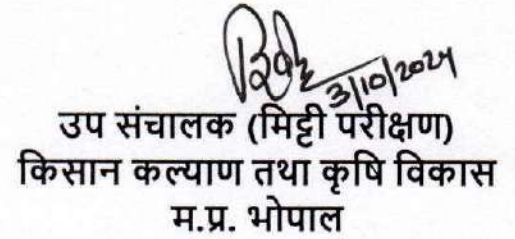 3/10/2024
उप संचालक (मिट्टी परीक्षण)
किसान कल्याण तथा कृषि विकास
म.प्र. भोपाल